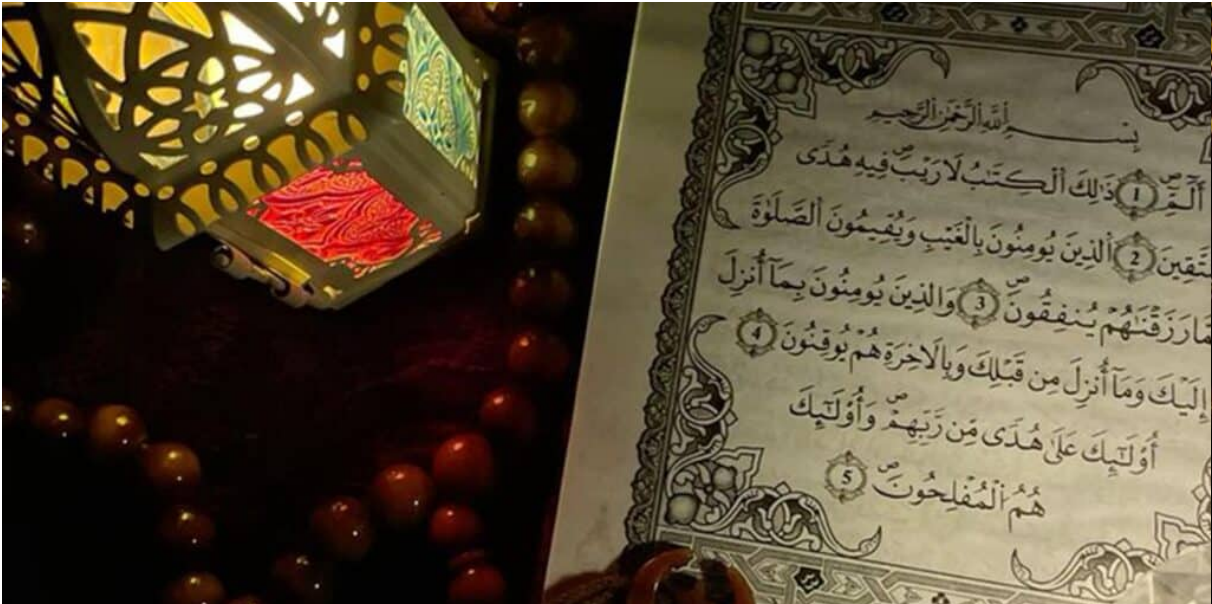 بِسْمِ اِ۬للَّهِ اِ۬لرَّحْمَٰنِ اِ۬لرَّحِيمِ
أَلَٓمِّٓۖ 1 ذَٰلِكَ اَ۬لْكِتَٰبُ لَا رَيْبَۖ فِيهِ هُدىٗ
ـتَّقِينَ 2 اَ۬لذِينَ يُومِنُونَ بِالْغَيْبِ وَيُقِيمُونَ اَ۬لصَّلَوٰةَ
ـمَّا رَزَقْنَٰهُمْ يُنفِقُونَۖ 3 وَالذِينَ يُومِنُونَ بِمَآ أُنزِلَ
إِلَيْكَ وَمَآ أُنزِلَ مِن قَبْلِكَ وَبِالَاخِرَةِ هُمْ يُوقِنُونَ 4
أُوْلَٰٓئِكَ عَلَىٰ هُدىٗ مِّن رَّبِّهِمْۖ وَأُوْلَٰٓئِكَ
هُمُ اُ۬لْمُفْلِحُونَۖ 5